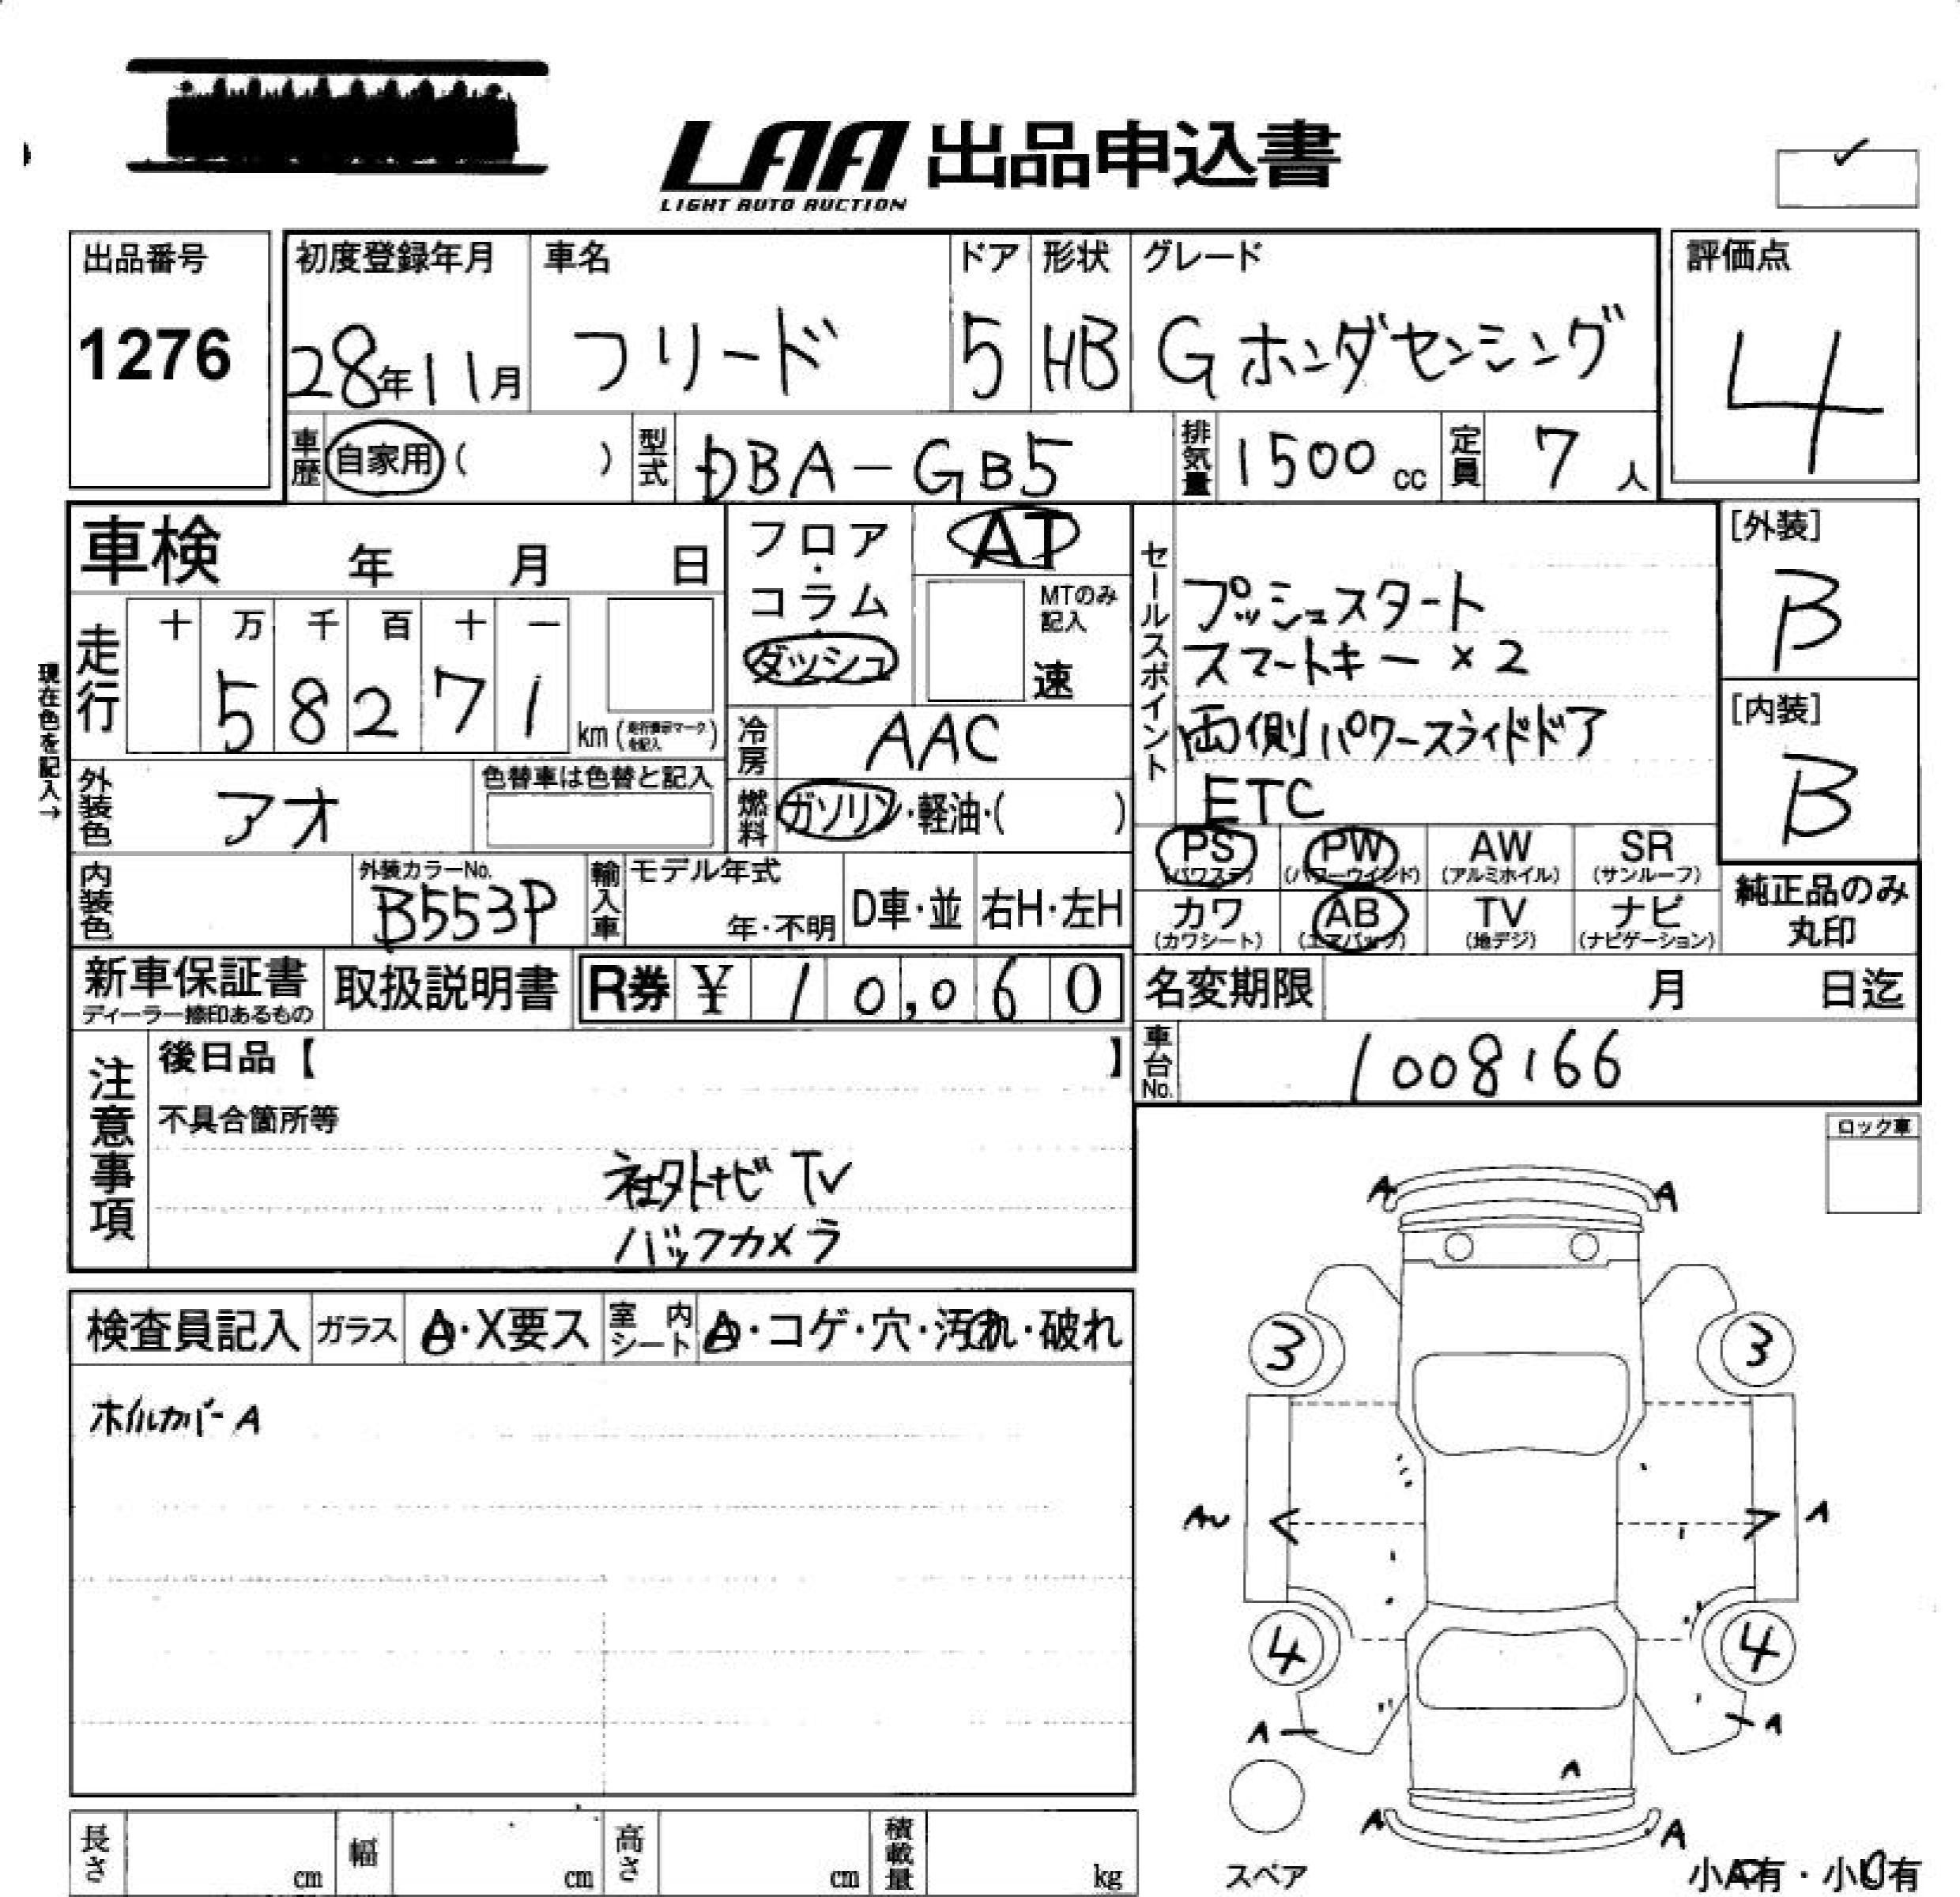 LAA 出品申込書
LIGHT AUTO AUCTION
出品番号
1276
初度登録年月
28年11月
車名
フリード
ドア
5
形状
HB
グレード
Gホンダセンシング
評価点
4
車歴 自家用 ( )
型式 DBA-GB5
排気量 1500 cc
定員 7 人
車検 年 月 日
走行 十 万 千 百 十 一
5 8 2 7 1 km (走行表示マークを記入)
現在色を記入→
外装色 アオ
色替車は色替と記入
フロア・コラム・ダッシュ
AT
MTのみ記入
速
冷房 AAC
燃料 ガソリン・軽油・( )
セールスポイント
プッシュスタート
スマートキー×2
両側パワースライドドア
ETC
[外装]
B
[内装]
B
PS (パワステ) PW (パワーウインド) AW (アルミホイル) SR (サンルーフ)
カワ (カワシート) AB (エアバック) TV (地デジ) ナビ (ナビゲーション)
純正品のみ丸印
内装色
外装カラーNo.
B553P
輸入車 モデル年式
年・不明
D車・並 右H・左H
新車保証書
ディーラー捺印あるもの
取扱説明書
R券 ¥ 10,060
名変期限 月 日迄
車台No. 1008166
注意事項
後日品【 】
不具合箇所等
社外ナビ TV
バックカメラ
ロック車
検査員記入 ガラス A・X要ス 室内シート A・コゲ・穴・汚れ・破れ
ホイルカバーA
A A
3 3
A A
4 4
A A
A
A A
スペア
小A有・小U有
長さ cm 幅 cm 高さ cm 積載量 kg